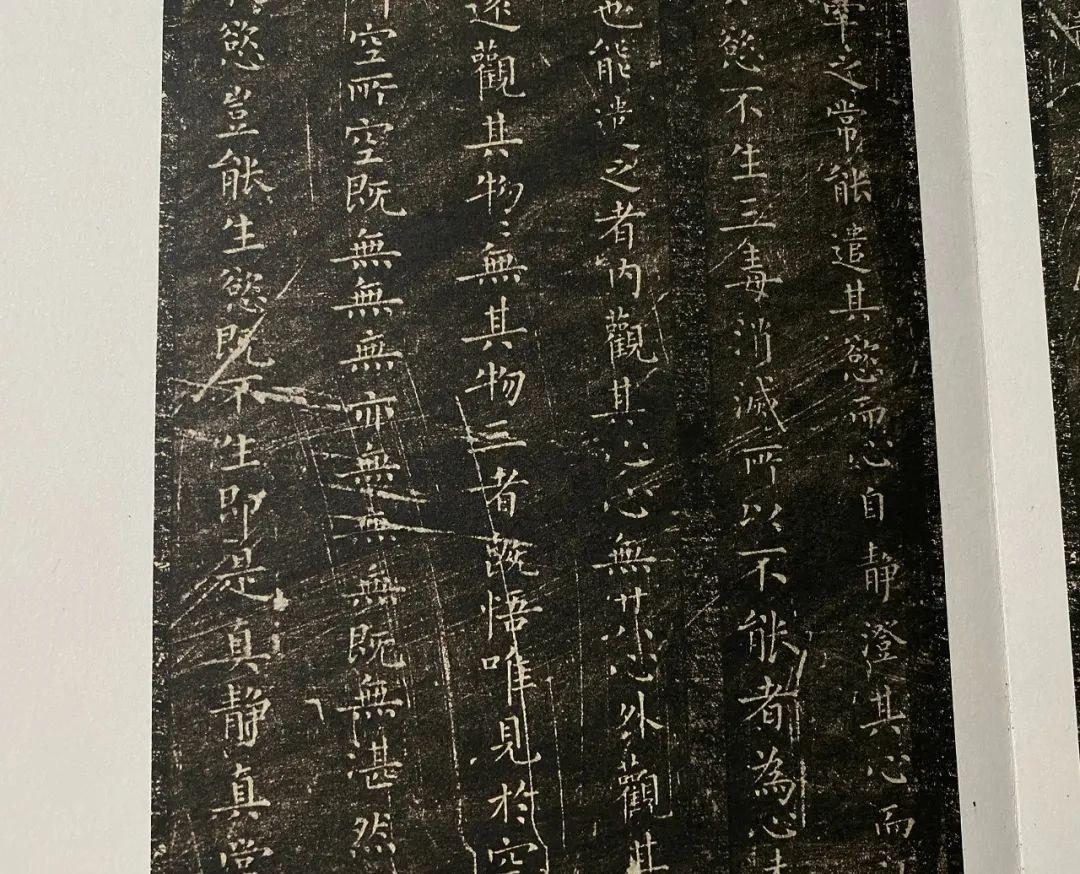 牽之常能遣其慾而心自静澄其心而
慾不生三毒消滅所以不能者為心未
也能遣之者内觀其心心無其心外觀其
遠觀其物〻無其物三者既悟唯見於空
所空所空既無無無亦無無無既無湛然
慾豈能生慾既不生即是真静真常